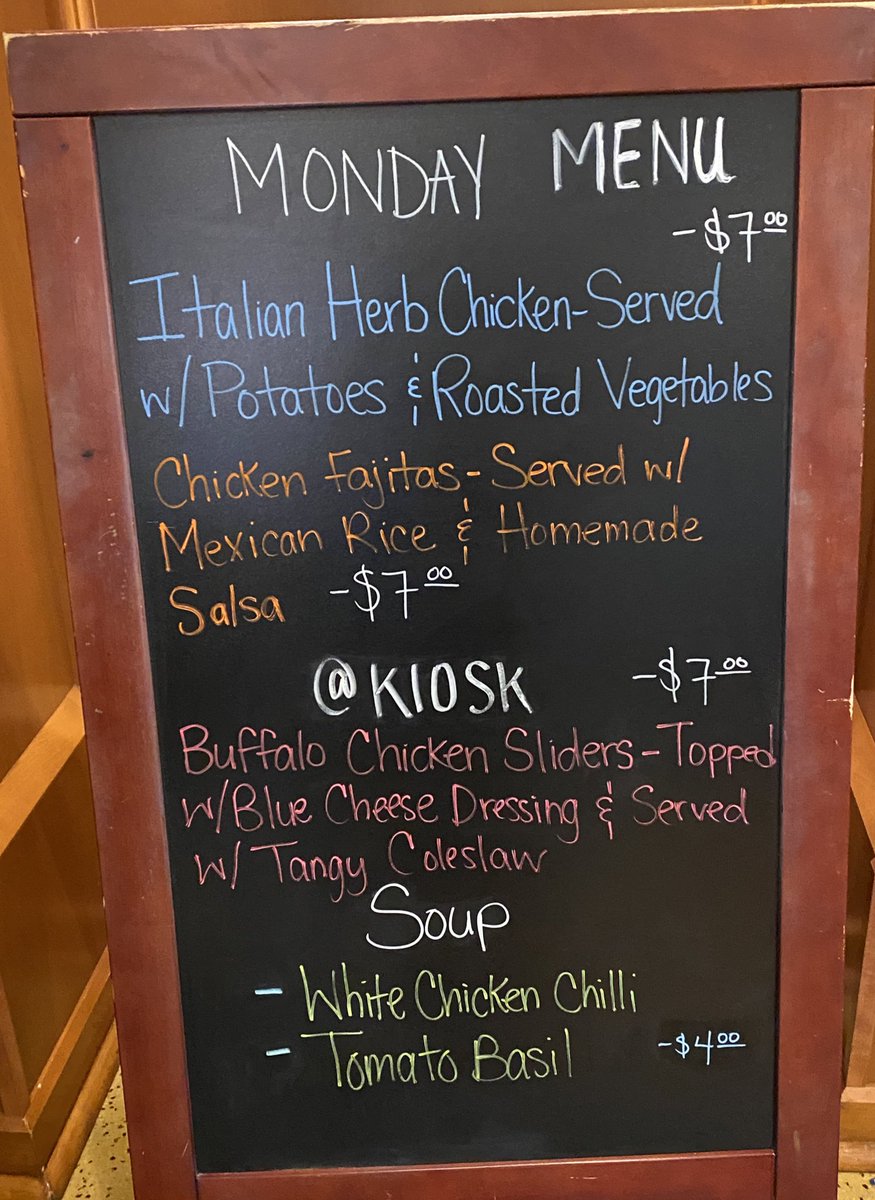 MONDAY MENU
-$7.00
Italian Herb Chicken-Served
w/ Potatoes & Roasted Vegetables
Chicken Fajitas-Served w/
Mexican Rice & Homemade
Salsa -$7.00
@KIOSK -$7.00
Buffalo Chicken Sliders-Topped
w/Blue Cheese Dressing & Served
w/ Tangy Coleslaw
Soup
- White Chicken Chilli
- Tomato Basil -$4.00